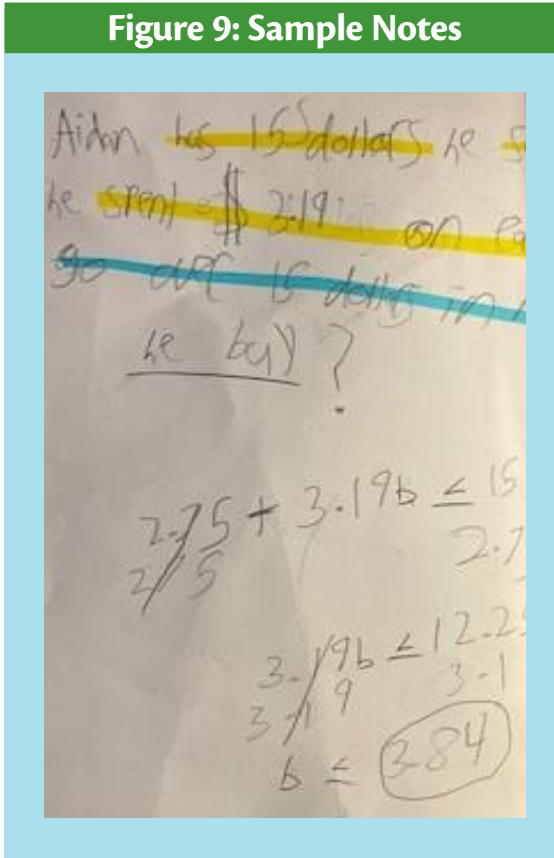 Figure 9: Sample Notes
Aidan has 15 dollars he s
he spent $ 3.19 on ea
go over 15 dollars in
he buy ?
2.75 + 3.19b ≤ 15
2.75 2.7
3.19b ≤ 12.25
3.19 3.1
b ≤ 3.84